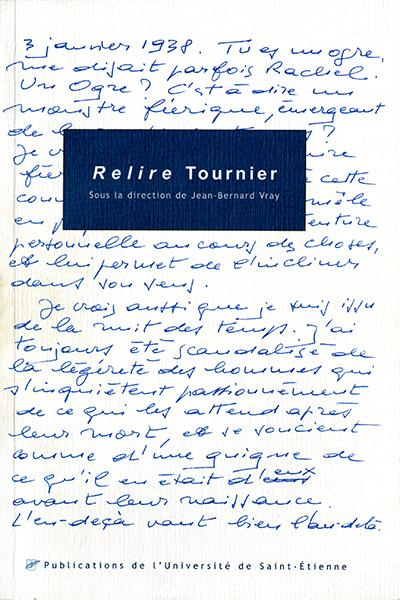 3 janvier 1938. Tu es un ogre,
me disait parfois Rachel.
Un Ogre ? C'est à dire un
monstre féerique, émergeant
de la ?
Je
Relire Tournier
Sous la direction de Jean-Bernard Vray
fée cette
con mêle
en
personnelle au cours des choses,
et lui permet de l'incliner
dans son sens.
Je crois aussi que je suis issu
de la nuit des temps. J'ai
toujours été scandalisé de
la légèreté des hommes qui
s'inquiètent passionnément
de ce qui les attend après
leur mort, et se soucient
comme d'une guigne de
ce qu'il en était d'eux
avant leur naissance.
L'en-deçà vaut bien l'au-delà.
Publications de l'Université de Saint-Étienne